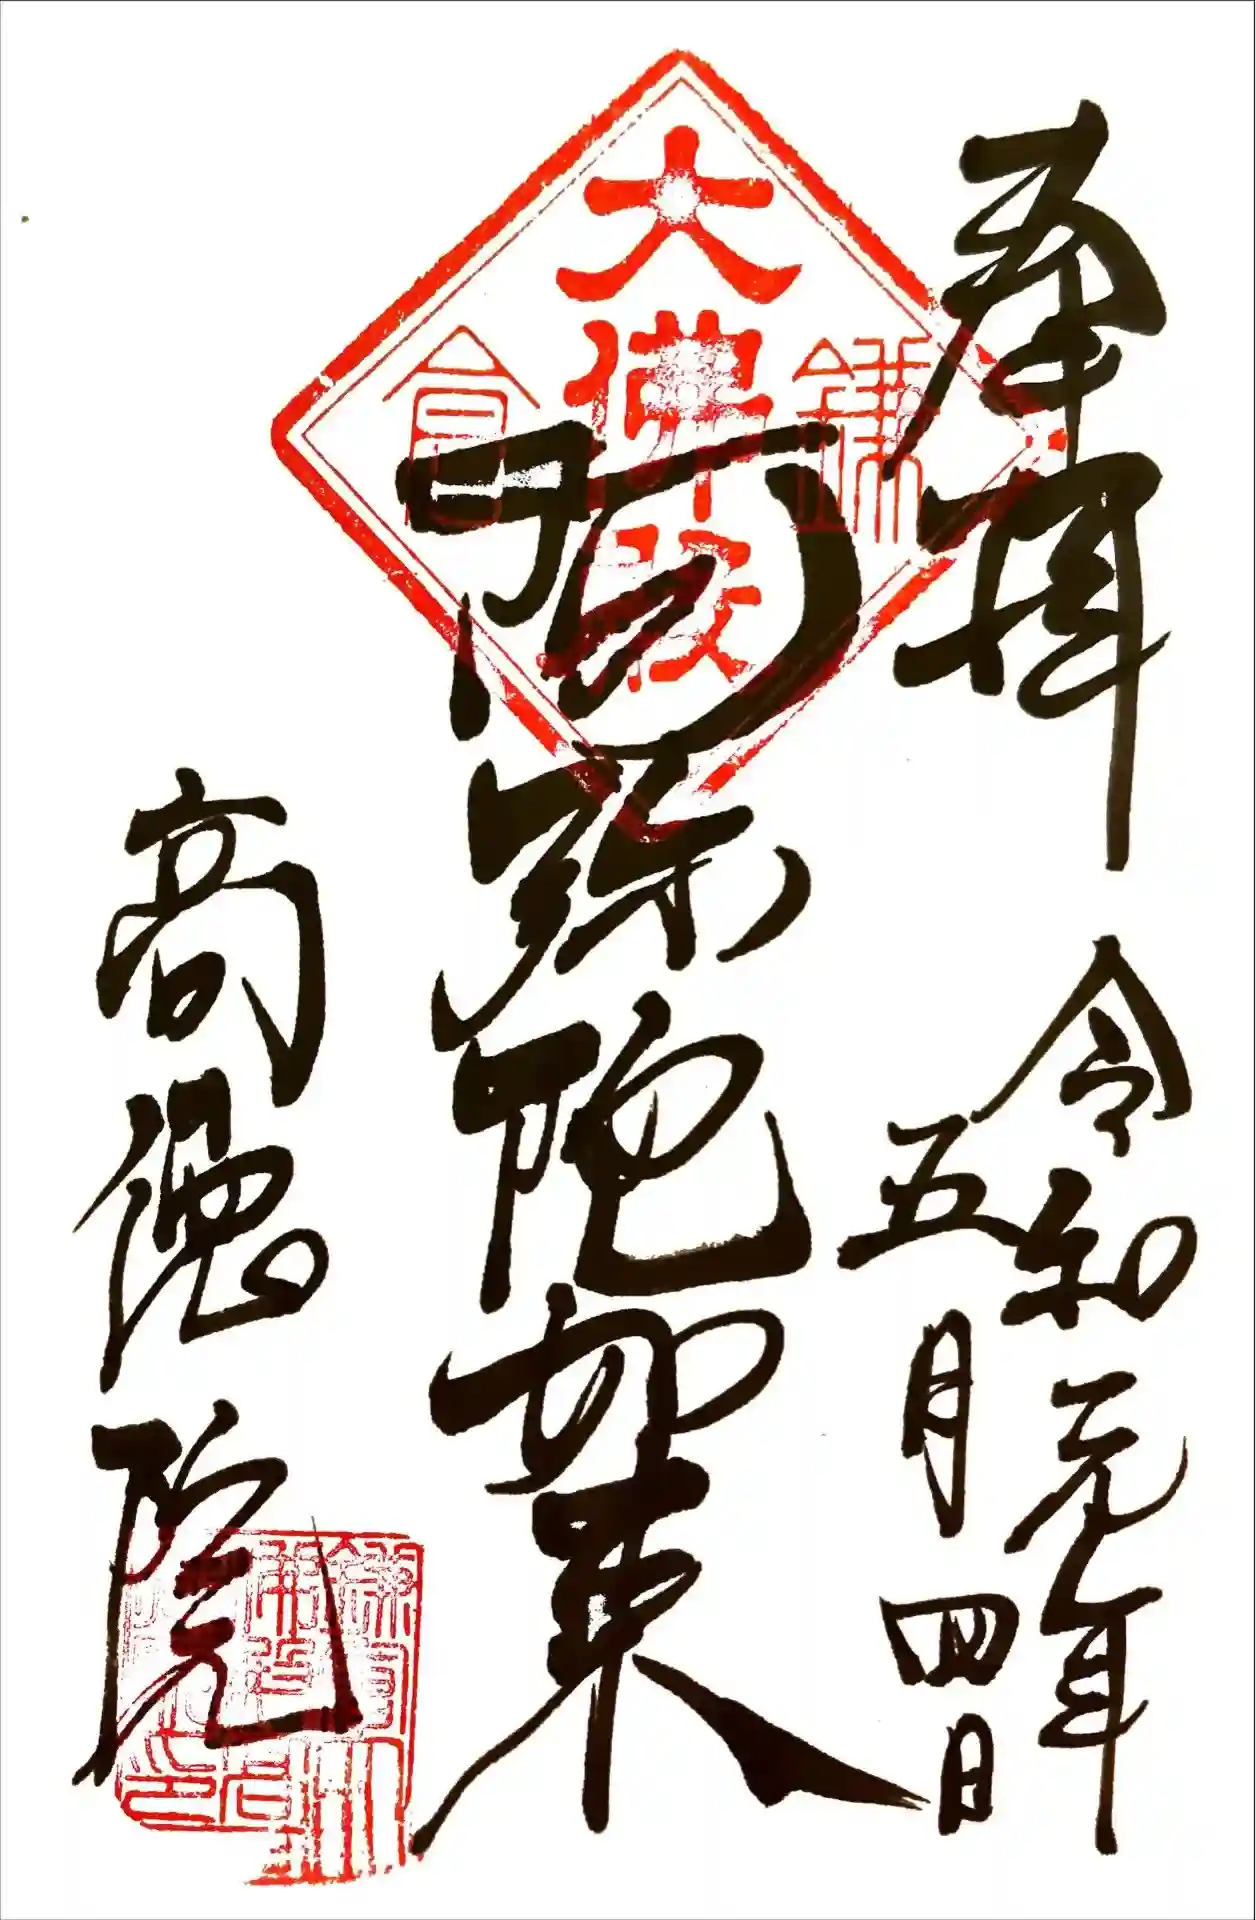 奉拝
令和元年
五月四日
阿弥陀如来
高徳院
大佛殿
鎌倉